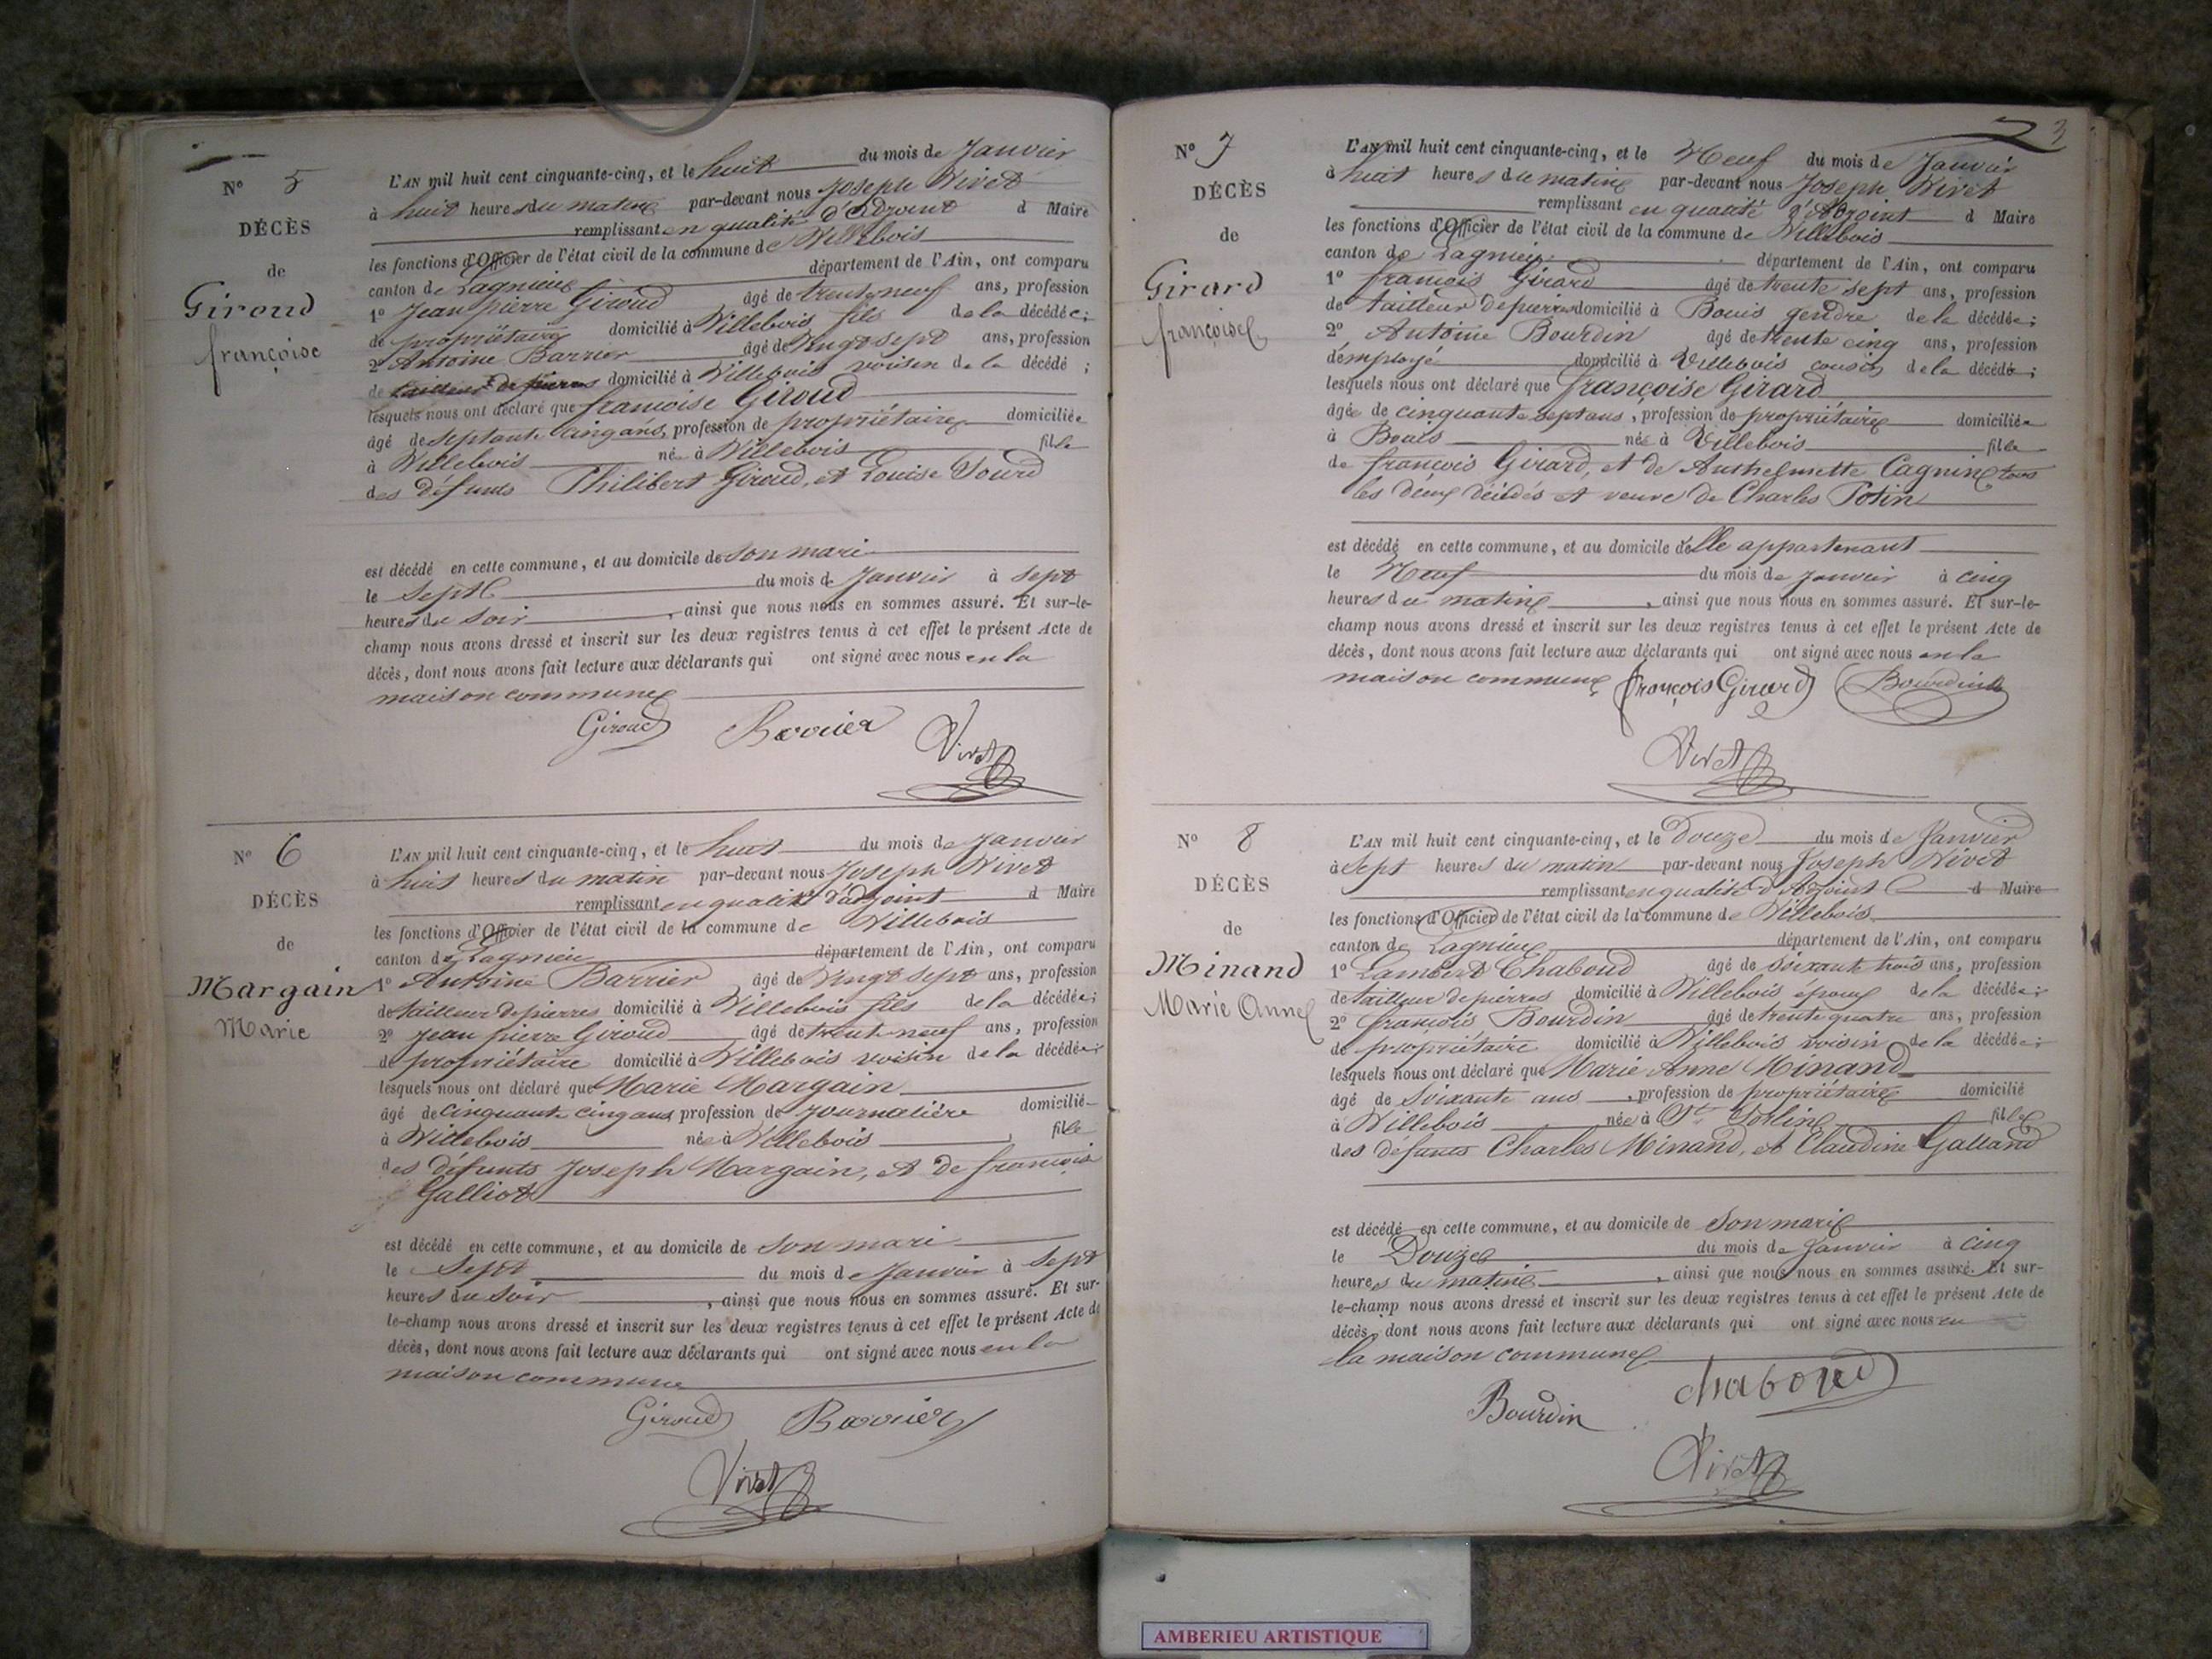 N° 5
DÉCÈS
de
Giroud
françoise
L'AN mil huit cent cinquante-cinq, et le huit du mois de Janvier
à huit heures du matin par-devant nous Joseph Vivet
remplissant en qualité d'Adjoint d Maire
les fonctions d'Officier de l'état civil de la commune de Villebois
canton de Lagnieu département de l'Ain, ont comparu
1° Jean pierre Giroud âgé de trente neuf ans, profession
de propriétaire domicilié à Villebois fils de la décédée;
2° Antoine Barrier âgé de vingt sept ans, profession
de tailleur de pierres domicilié à Villebois voisin de la décédé ;
lesquels nous ont déclaré que françoise Giroud
âgé de septante cinq ans, profession de propriétaire domiciliée
à Villebois née à Villebois fille
des défunts Philibert Giroud, et Louise Sourd
est décédé en cette commune, et au domicile de son mari
le sept du mois de Janvier à sept
heures du soir, ainsi que nous nous en sommes assuré. Et sur-le-
champ nous avons dressé et inscrit sur les deux registres tenus à cet effet le présent Acte de
décès, dont nous avons fait lecture aux déclarants qui ont signé avec nous en la
maison commune
Giroud Barrier Vivet
N° 6
DÉCÈS
de
Margain
Marie
L'AN mil huit cent cinquante-cinq, et le huit du mois de Janvier
à huit heures du matin par-devant nous Joseph Vivet
remplissant en qualité d'adjoint d Maire
les fonctions d'Officier de l'état civil de la commune de Villebois
canton de Lagnieu département de l'Ain, ont comparu
1° Antoine Barrier âgé de vingt sept ans, profession
de tailleur de pierres domicilié à Villebois fils de la décédée;
2° Jean pierre Giroud âgé de trente neuf ans, profession
de propriétaire domicilié à Villebois voisin de la décédée;
lesquels nous ont déclaré que Marie Margain
âgé de cinquante cinq ans, profession de journalière domicilié
à Villebois née à Villebois, fille
des défunts Joseph Margain, et de françoise
Galliot
est décédé en cette commune, et au domicile de son mari
le Sept du mois de Janvier à sept
heures du soir, ainsi que nous nous en sommes assuré. Et sur-
le-champ nous avons dressé et inscrit sur les deux registres tenus à cet effet le présent Acte de
décès, dont nous avons fait lecture aux déclarants qui ont signé avec nous en la
maison commune
Giroud Barrier
Vivet
3
N° 7
DÉCÈS
de
Girard
françoise
L'AN mil huit cent cinquante-cinq, et le Neuf du mois de Janvier
à huit heures du matin par-devant nous Joseph Vivet
remplissant en qualité d'Adjoint d Maire
les fonctions d'Officier de l'état civil de la commune de Villebois
canton de Lagnieu département de l'Ain, ont comparu
1° françois Girard âgé de trente sept ans, profession
de tailleur de pierres domicilié à Bouis gendre de la décédée;
2° Antoine Bourdin âgé de trente cinq ans, profession
d'employé domicilié à Villebois cousin de la décédé;
lesquels nous ont déclaré que françoise Girard
âgée de cinquante sept ans, profession de propriétaire domiciliée
à Bouis née à Villebois fille
de françois Girard, et de Anthelmette Cagnin tous
les deux décédés et veuve de Charles Potin
est décédé en cette commune, et au domicile d'elle appartenant
le Neuf du mois de Janvier à cinq
heures du matin, ainsi que nous nous en sommes assuré. Et sur-le-
champ nous avons dressé et inscrit sur les deux registres tenus à cet effet le présent Acte de
décès, dont nous avons fait lecture aux déclarants qui ont signé avec nous en la
maison commune françois Girard Bourdin
Vivet
N° 8
DÉCÈS
de
Minand
Marie Anne
L'AN mil huit cent cinquante-cinq, et le Douze du mois de Janvier
à sept heures du matin par-devant nous Joseph Vivet
remplissant en qualité d'Adjoint d Maire
les fonctions d'Officier de l'état civil de la commune de Villebois
canton de Lagnieu département de l'Ain, ont comparu
1° Lambert Chaboud âgé de soixante trois ans, profession
de tailleur de pierres domicilié à Villebois époux de la décédée;
2° françois Bourdin âgé de trente quatre ans, profession
de propriétaire domicilié à Villebois voisin de la décédée;
lesquels nous ont déclaré que Marie Anne Minand
âgé de soixante ans, profession de propriétaire domicilié
à Villebois née à St Sorlin fille
des défunts Charles Minand, et Claudine Galland
est décédé en cette commune, et au domicile de son mari
le Douze du mois de Janvier à cinq
heures du matin, ainsi que nous nous en sommes assuré. Et sur-
le-champ nous avons dressé et inscrit sur les deux registres tenus à cet effet le présent Acte de
décès, dont nous avons fait lecture aux déclarants qui ont signé avec nous en
la maison commune
Bourdin chaboud
Vivet
AMBERIEU ARTISTIQUE